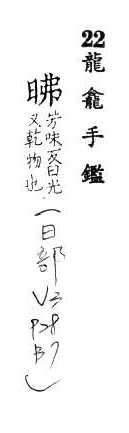 22龍龕手鑑
昲芳味反日光
又乾物也
(日部
V3
P28
B7)